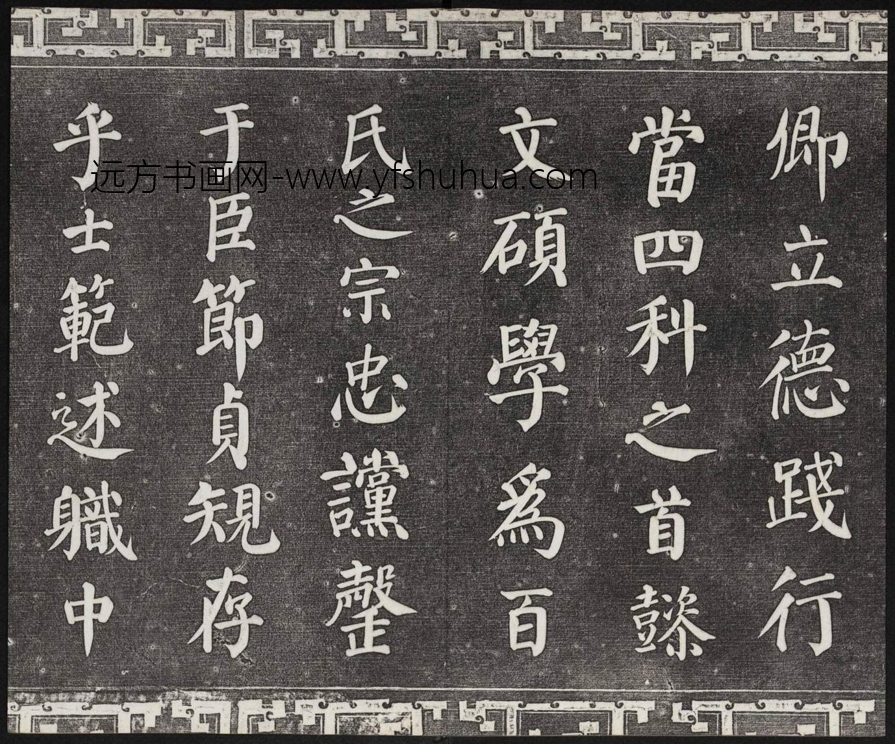 卿立德踐行
當四科之首懿
文碩學為百
氏之宗忠讜罄
于臣節貞規存
乎士範述職中
远方书画网-www.yfshuhua.com